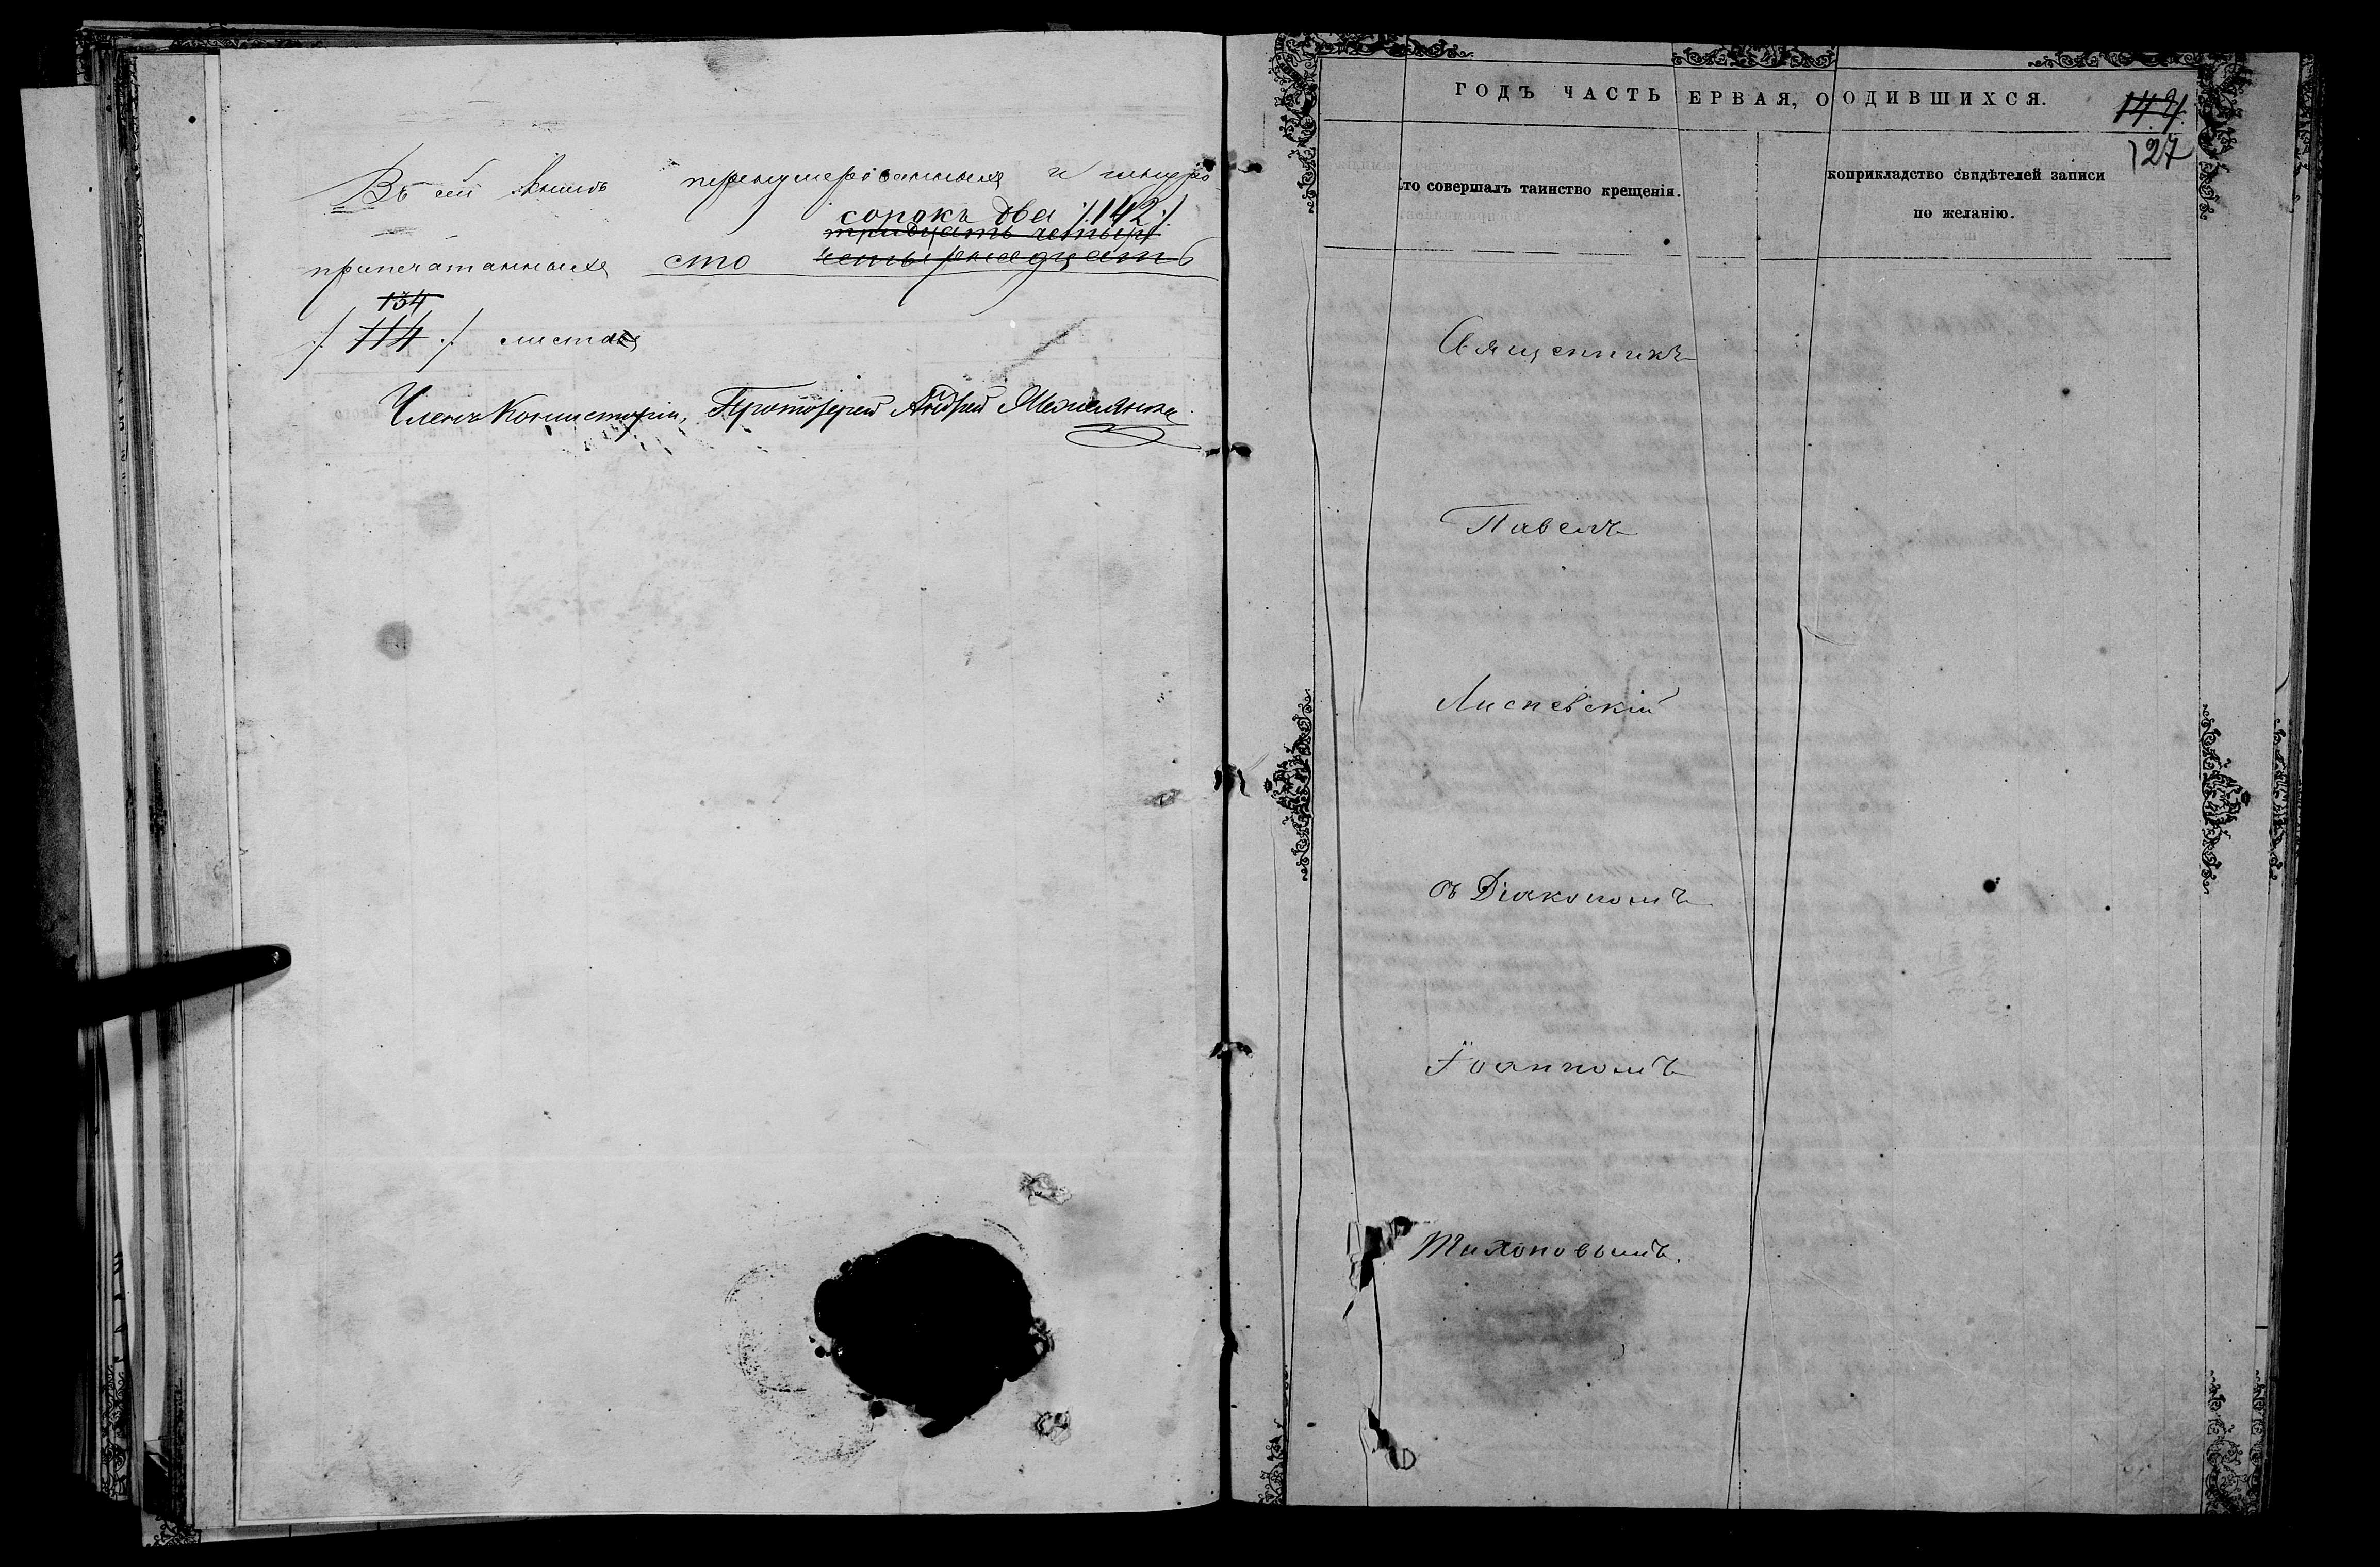 Въ сей книгѣ перенумерованныхъ и шнуро-
сорокъ два ·/.142·/.
тридцать четыре
припечатанныхъ сто четырнадцать
134
/. 114 ./. листовъ
Членъ Консисторіи, Протоіерей Андрей
ГОДЪ ЧАСТЬ ЕРВАЯ, О ОДИВШИХСЯ.
127
то совершалъ таинство крещенія.
коприкладство свидѣтелей записи
по желанію.
Священникъ
Павелъ
Лисневскій
съ Діакономъ
Іоанномъ
Тихоновымъ.